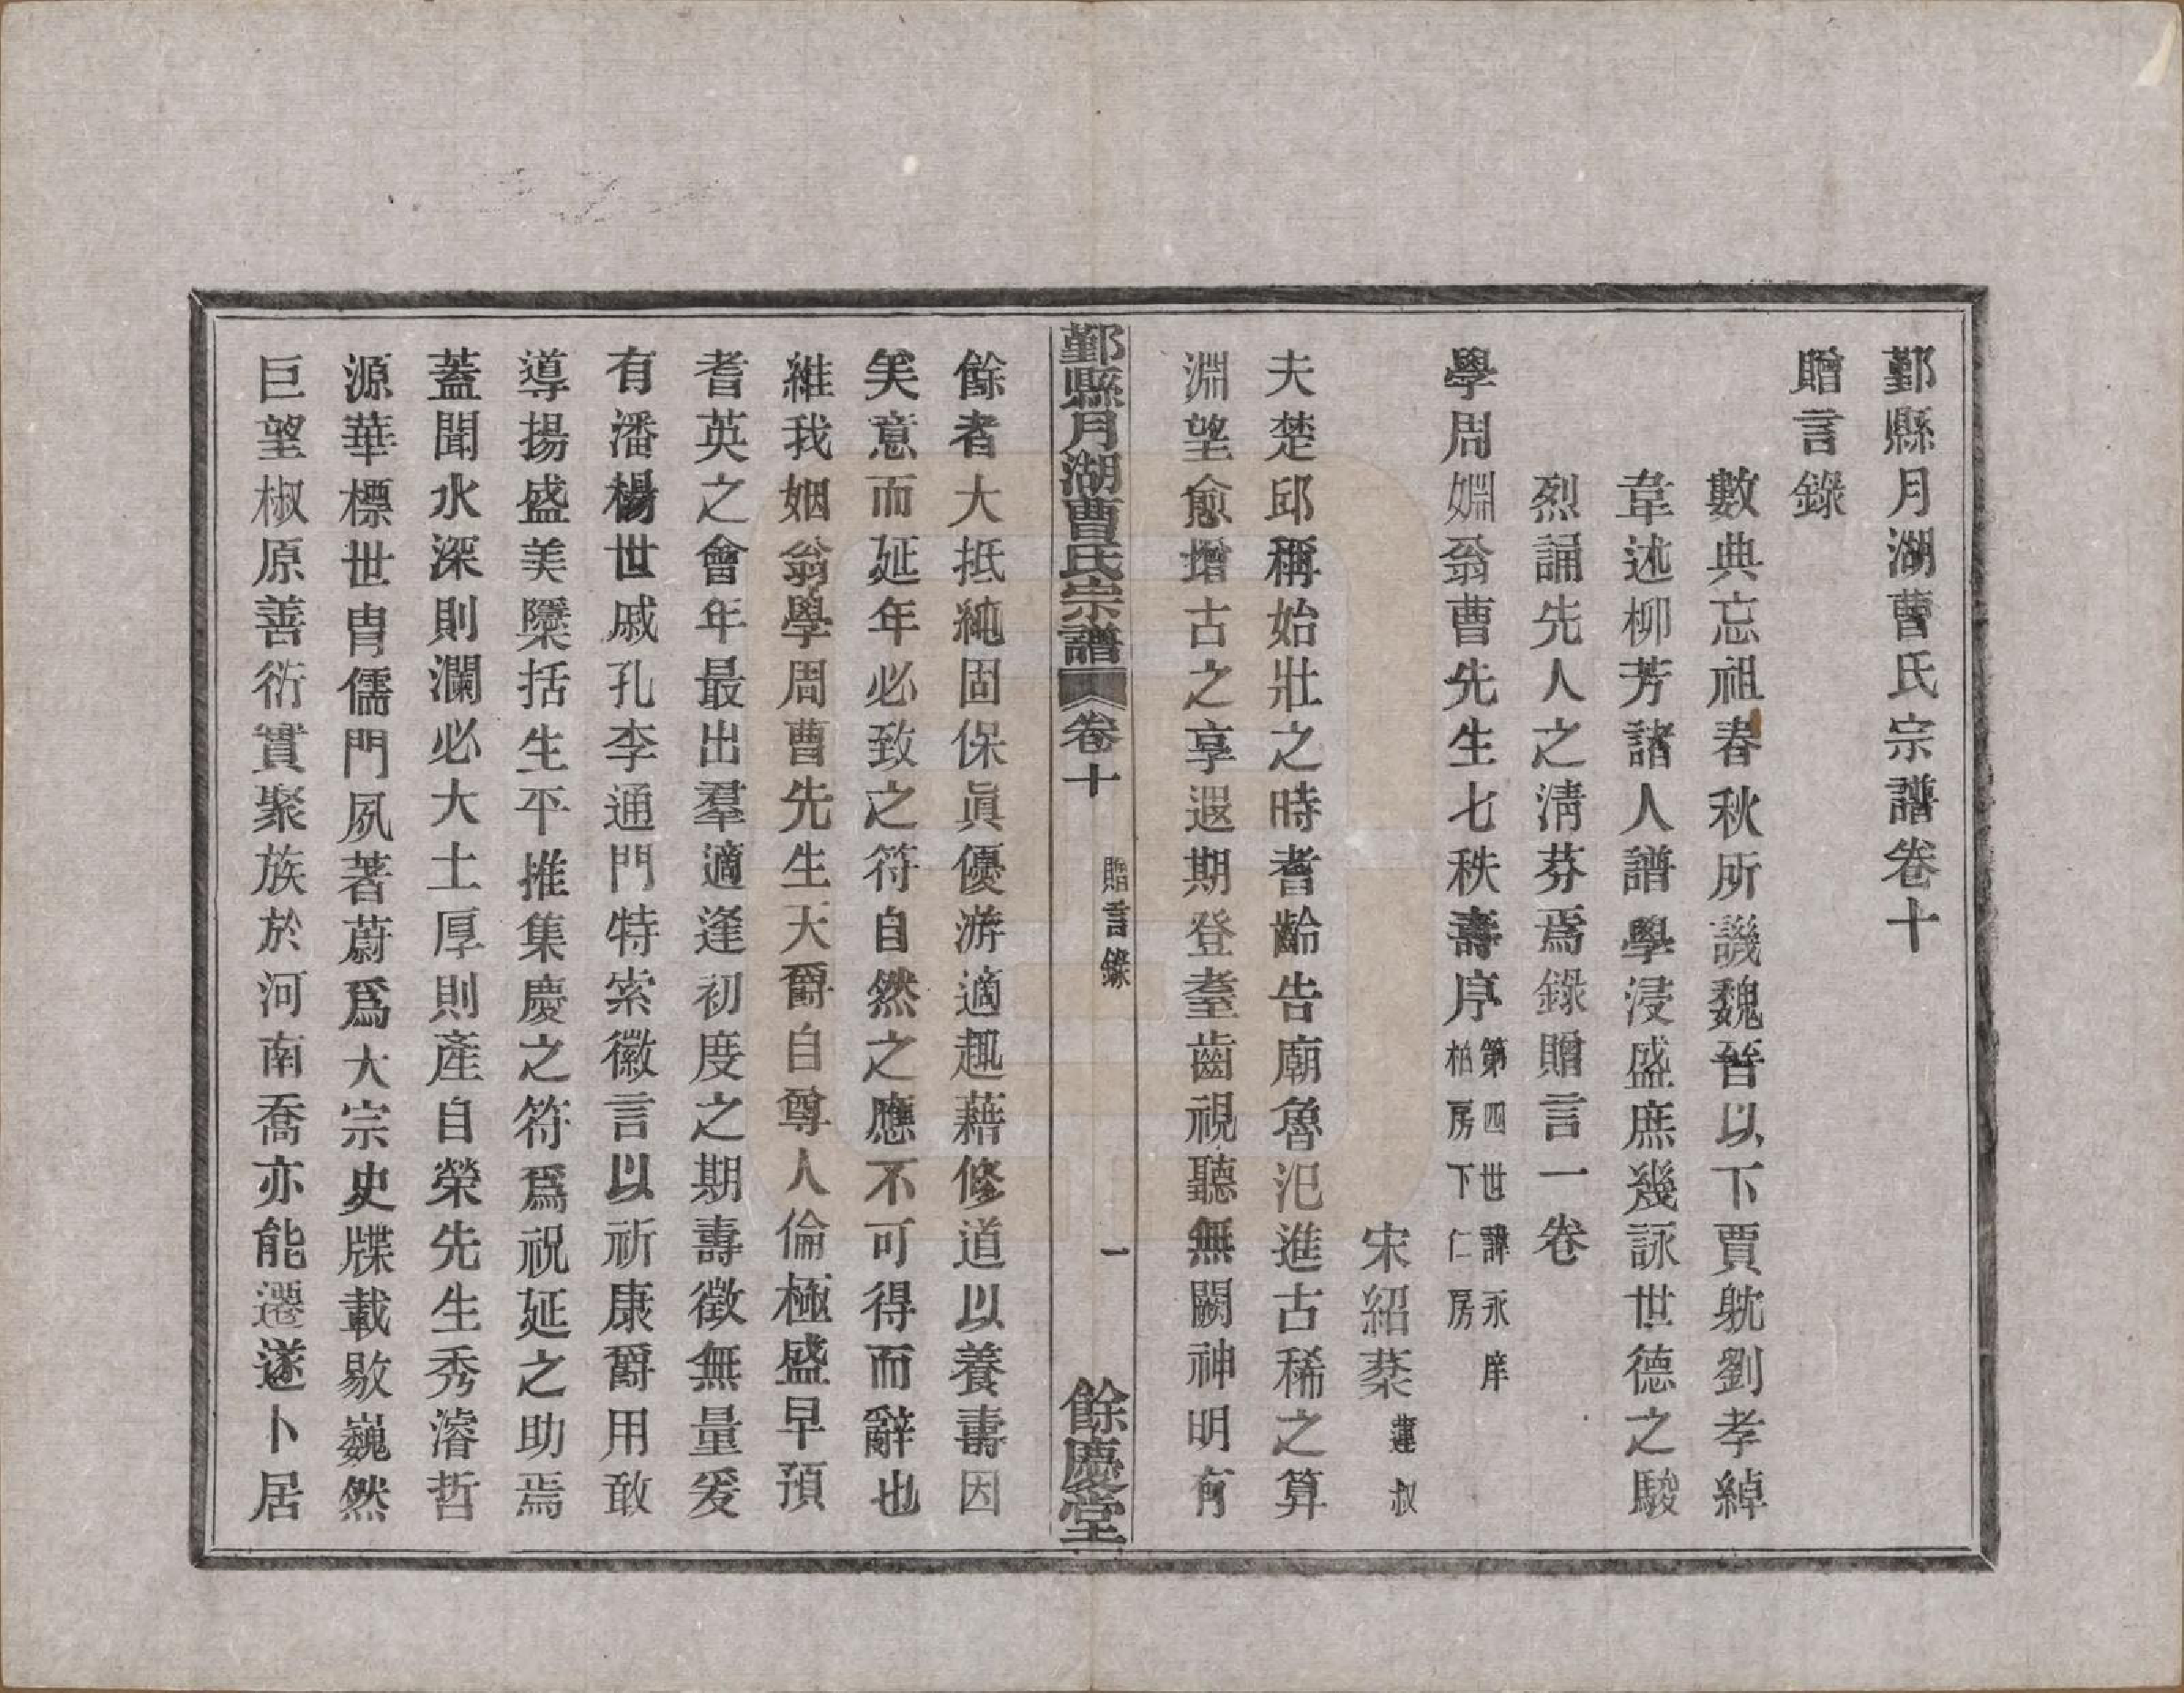 鄞縣月湖曹氏宗譜卷十
贈言錄
數典忘祖春秋所譏魏晉以下賈躭劉孝綽
韋述柳芳諸人譜學浸盛庶幾詠世德之駿
烈誦先人之淸芬焉錄贈言一卷
學周姻翁曹先生七秩壽序第四世諱永庠
柏房下仁房
宋紹棻蓮叔
夫楚邱稱始壯之時耆齡告廟魯汜進古稀之算
淵望愈增古之享遐期登耋齒視聽無闕神明有
鄞縣月湖曹氏宗譜 卷十 贈言錄 一 餘慶堂
餘者大抵純固保眞優游適趣藉修道以養壽因
矣意而延年必致之符自然之應不可得而辭也
維我姻翁學周曹先生天爵自尊人倫極盛早預
耆英之會年最出羣適逢初度之期壽徵無量爰
有潘楊世戚孔李通門特索徽言以祈康爵用敢
導揚盛美檃括生平推集慶之符爲祝延之助焉
蓋聞水深則瀾必大土厚則產自榮先生秀濬哲
源華標世胄儒門夙著蔚爲大宗史牒載敭巍然
巨望椒原善衍實聚族於河南喬亦能遷遂卜居